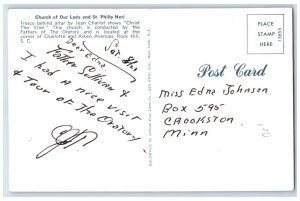 Church of Our Lady and St. Philip Neri
Fresco behind altar by Jean Charlot shows "Christ
The Vine." This church is conducted by the
Fathers of The Oratory and is located at the
corner of Charlotte and Aiken Avenues, Rock Hill,
S. C.
PLACE
STAMP
HERE
Sat
Dear Edna
Father Sullivan &
I had a nice visit
& Tour of The Oratory
Post Card
Miss Edna Johnson
Box 595
CROOKSTON
Minn